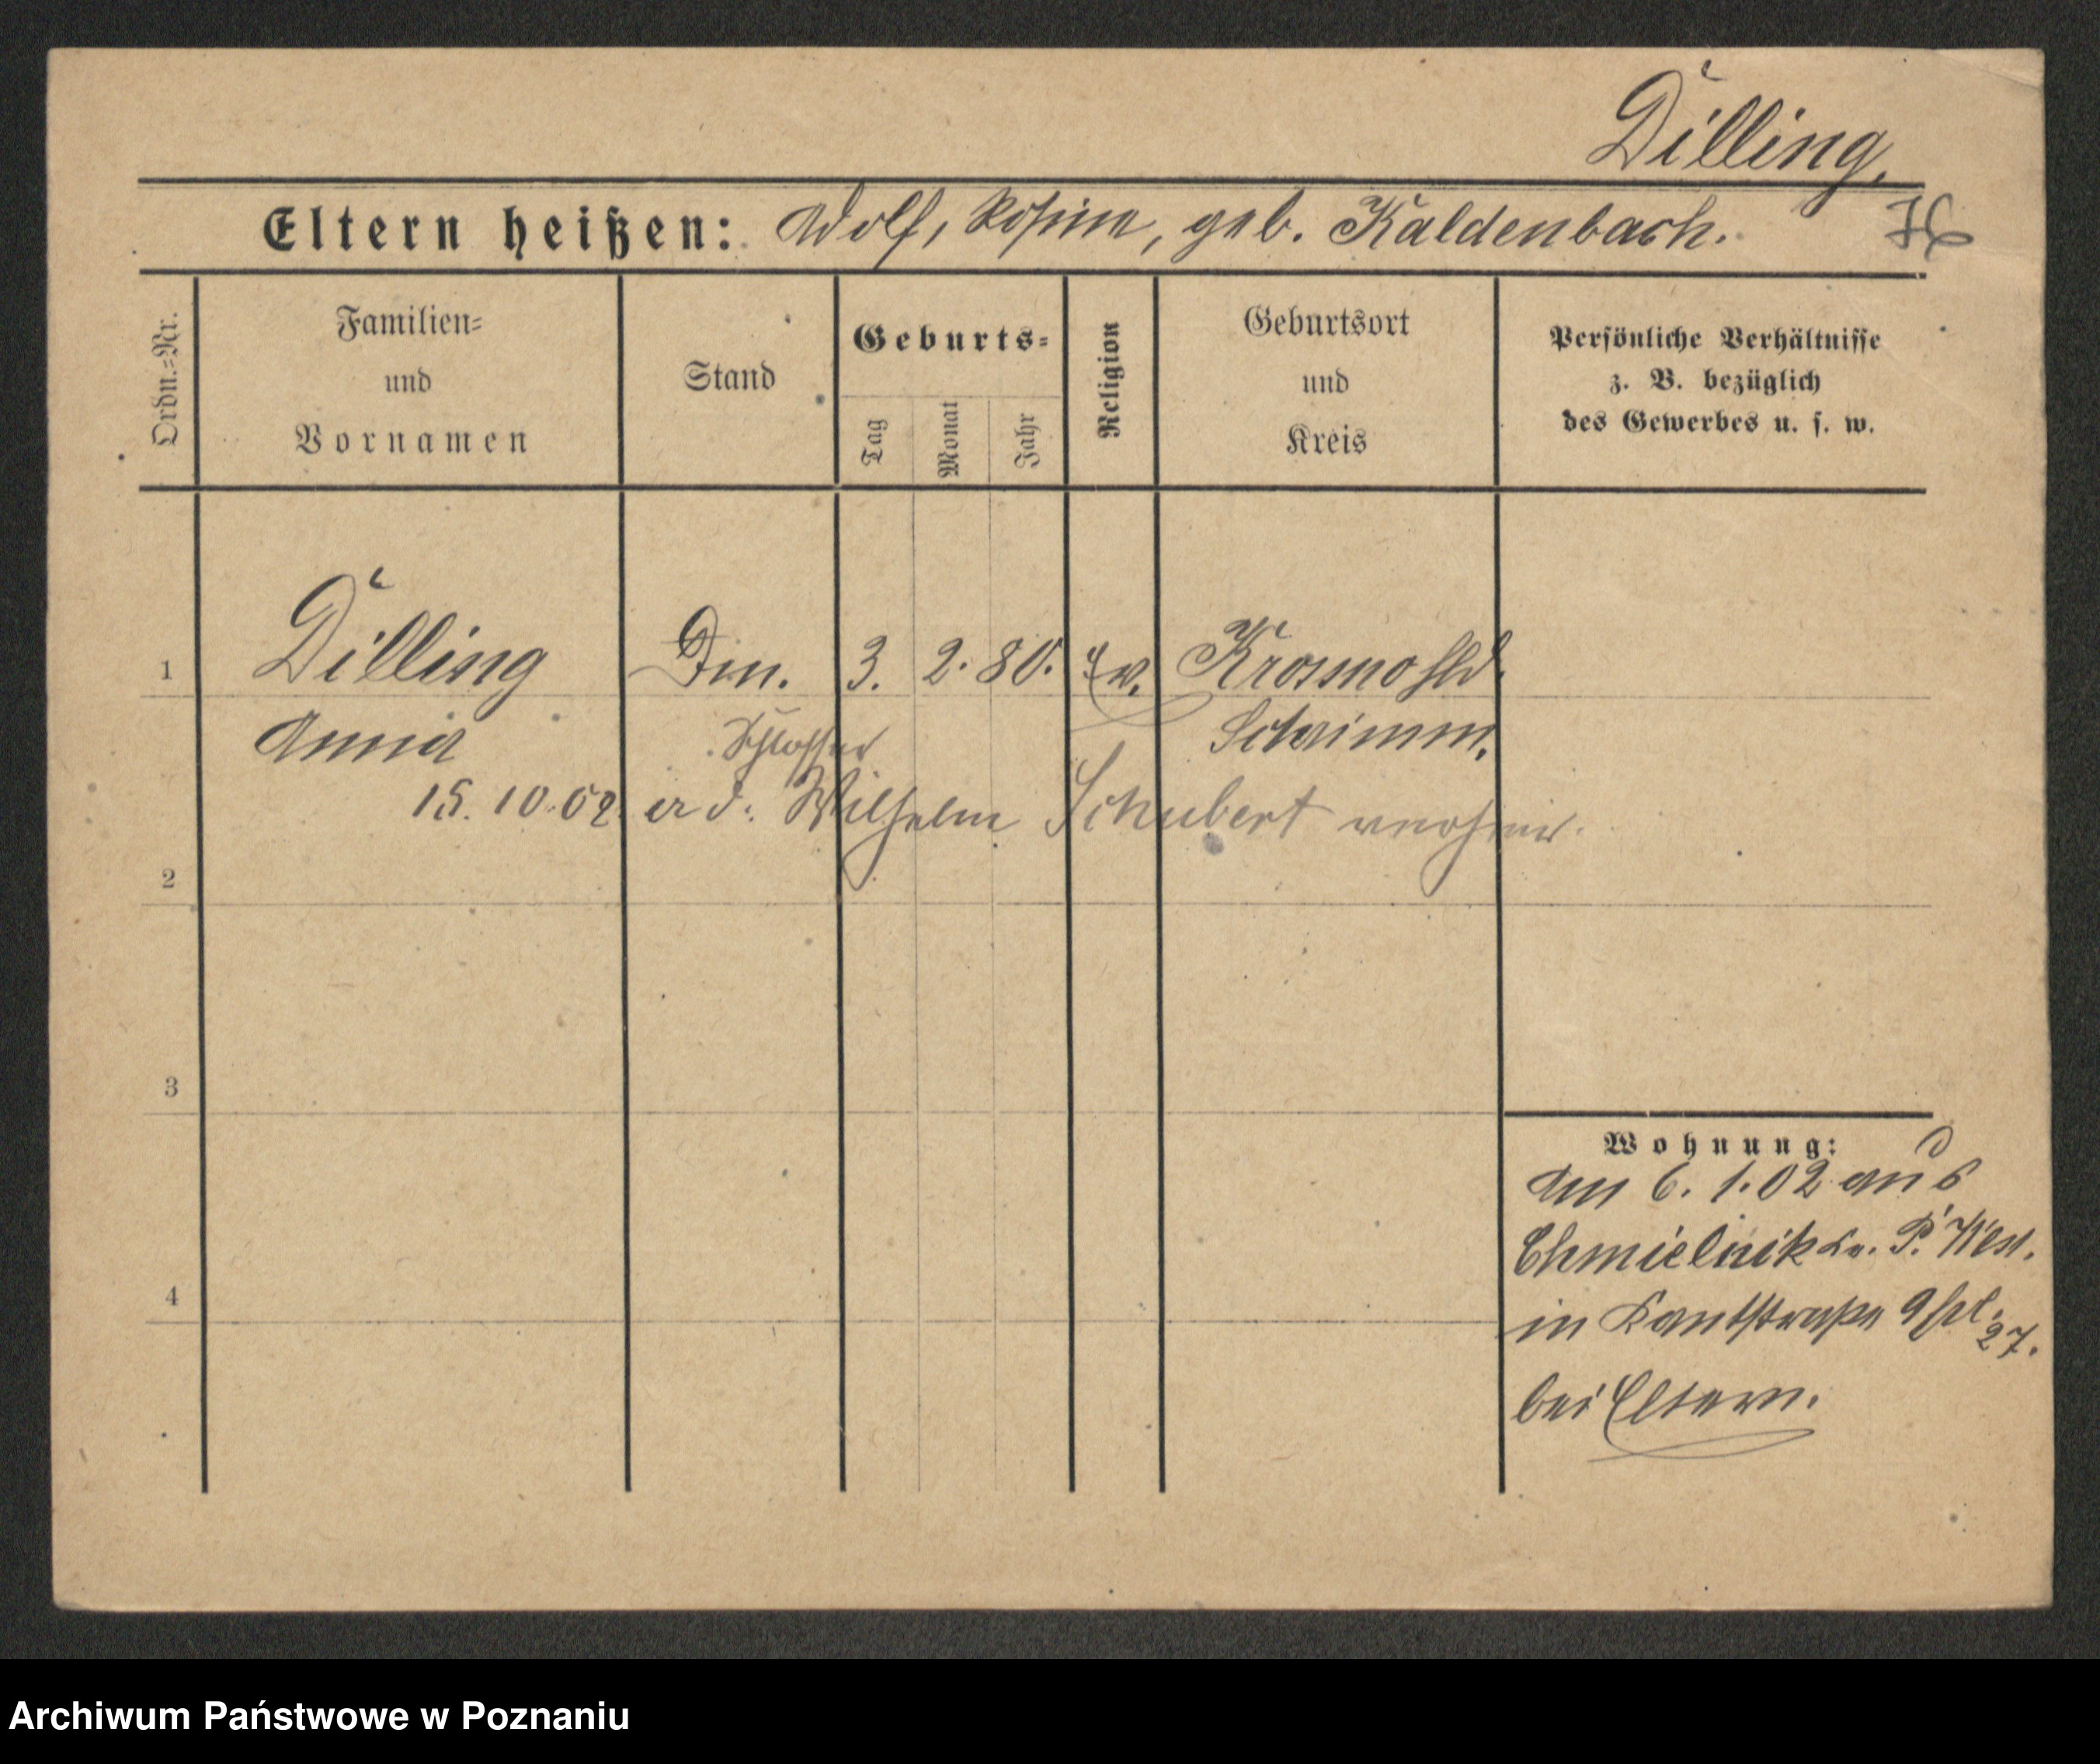 Dilling.
Eltern heißen: Adolf, Rosine, geb. Kaldenbach.
Ordn.=Nr.
Familien=
und
Vornamen
Stand
Geburts=
Tag
Monat
Jahr
Religion
Geburtsort
und
Kreis
Persönliche Verhältnisse
z. B. bezüglich
des Gewerbes u. s. w.
1 Dilling 3. 2. 80. Ev.
Anna Schlosser Schrimm.
15. 10. 02. Wilhelm Schubert verheir.
2
3
4
Wohnung:
Am 6. 1. 02 aus
Chmielnik Kr. P. West.
in Kantstraße 9
27.
bei Eltern.
Archiwum Państwowe w Poznaniu